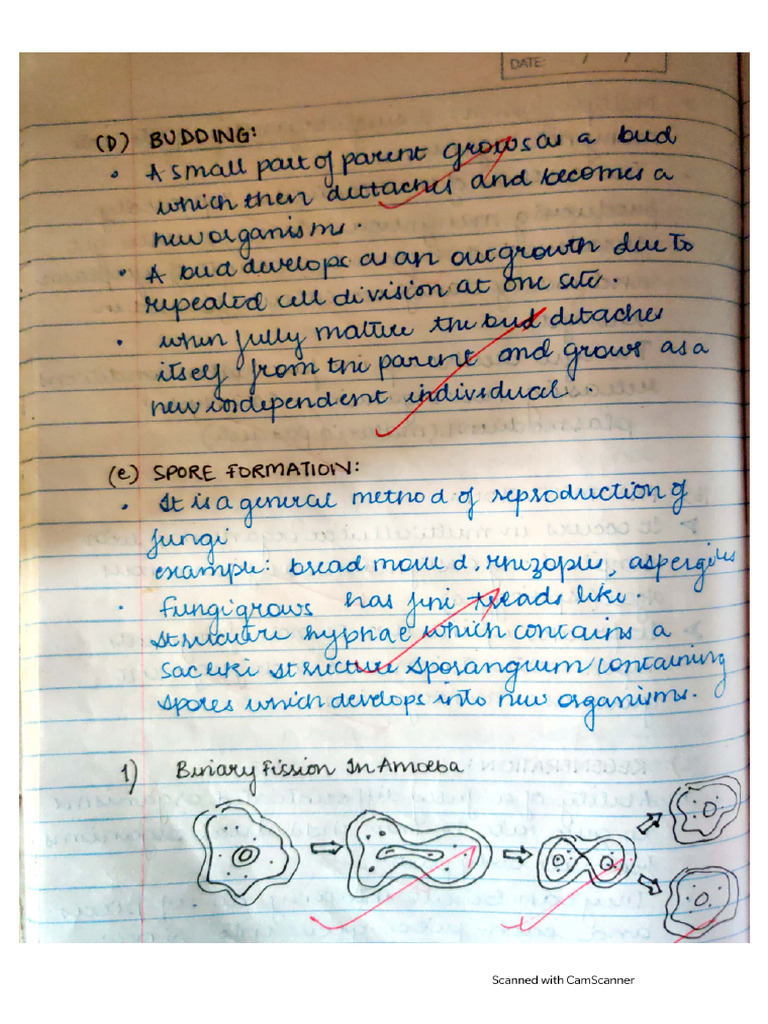 DATE: / /
(D) BUDDING:
• A small part of parent grows as a bud
which then dettaches and becomes a
new organisms.
• A bud develops as an outgrowth due to
repeated cell division at one site.
• when fully mature the bud detaches
itself from the parent and grows as a
new independent individual.
(e) SPORE FORMATION:
• It is a general method of reproduction of
fungi
example: bread mould, rhizopus, aspergillus
• fungi grows has fini treads like.
structure hyphae which contains a
sac like structure sporangium containing
spores which develops into new organisms.
1) Binary Fission In Amoeba
Scanned with CamScanner